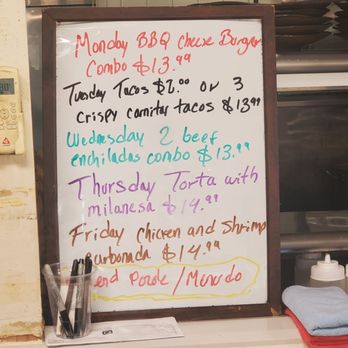 Monday BBQ Cheese Burger
Combo $13.99
Tuesday Tacos $2.00 or 3
crispy carnitas tacos $13.99
Wednesday 2 beef
enchiladas combo $13.99
Thursday Torta with
milanesa $14.99
Friday Chicken and Shrimp
carbonada $14.99
end Pozole/Menudo